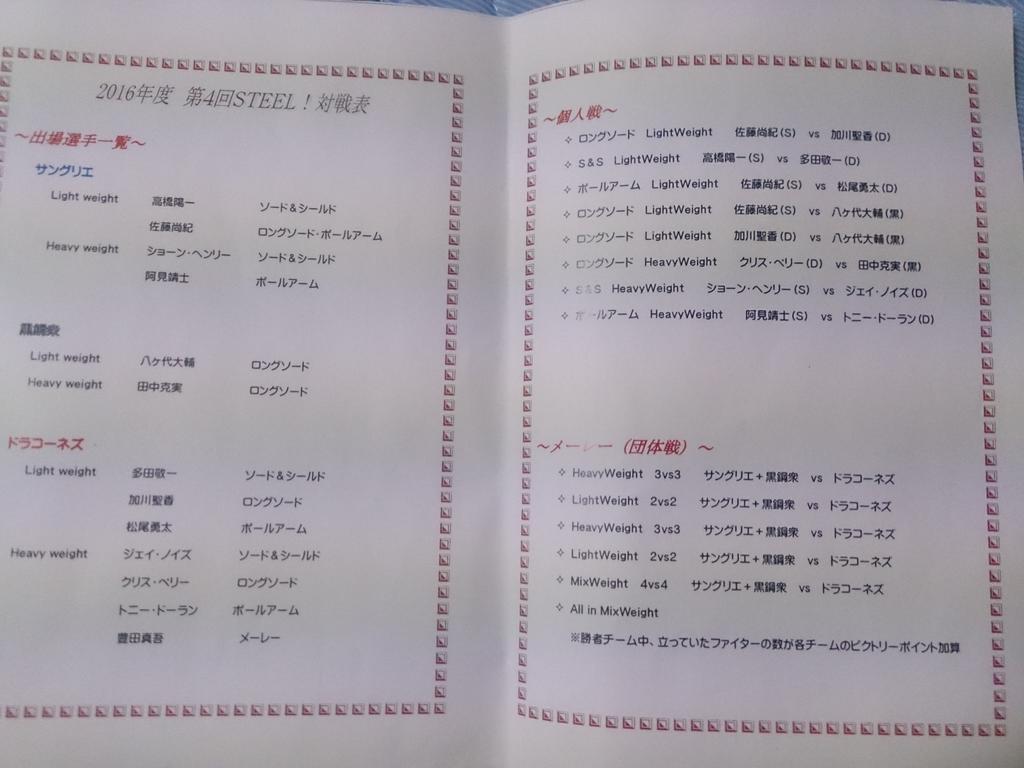 2016年度 第4回STEEL！対戦表
～出場選手一覧～
サングリエ
Light weight 高橋陽一 ソード＆シールド
佐藤尚紀 ロングソード・ポールアーム
Heavy weight ショーン・ヘンリー ソード＆シールド
阿見靖士 ポールアーム
黒鋼衆
Light weight 八ケ代大輔 ロングソード
Heavy weight 田中克実 ロングソード
ドラコーネズ
Light weight 多田敬一 ソード＆シールド
加川聖香 ロングソード
松尾勇太 ポールアーム
Heavy weight ジェイ・ノイズ ソード＆シールド
クリス・ベリー ロングソード
トニー・ドーラン ポールアーム
豊田真吾 メーレー
～個人戦～
✧ ロングソード LightWeight 佐藤尚紀(S) vs 加川聖香(D)
✧ S&S LightWeight 高橋陽一(S) vs 多田敬一(D)
✧ ポールアーム LightWeight 佐藤尚紀(S) vs 松尾勇太(D)
✧ ロングソード LightWeight 佐藤尚紀(S) vs 八ケ代大輔(黒)
✧ ロングソード LightWeight 加川聖香(D) vs 八ケ代大輔(黒)
✧ ロングソード HeavyWeight クリス・ベリー(D) vs 田中克実(黒)
✧ S&S HeavyWeight ショーン・ヘンリー(S) vs ジェイ・ノイズ(D)
✧ ポールアーム HeavyWeight 阿見靖士(S) vs トニー・ドーラン(D)
～メーレー（団体戦）～
✧ HeavyWeight 3vs3 サングリエ＋黒鋼衆 vs ドラコーネズ
✧ LightWeight 2vs2 サングリエ＋黒鋼衆 vs ドラコーネズ
✧ HeavyWeight 3vs3 サングリエ＋黒鋼衆 vs ドラコーネズ
✧ LightWeight 2vs2 サングリエ＋黒鋼衆 vs ドラコーネズ
✧ MixWeight 4vs4 サングリエ＋黒鋼衆 vs ドラコーネズ
✧ All in MixWeight
※勝者チーム中、立っていたファイターの数が各チームのビクトリーポイント加算